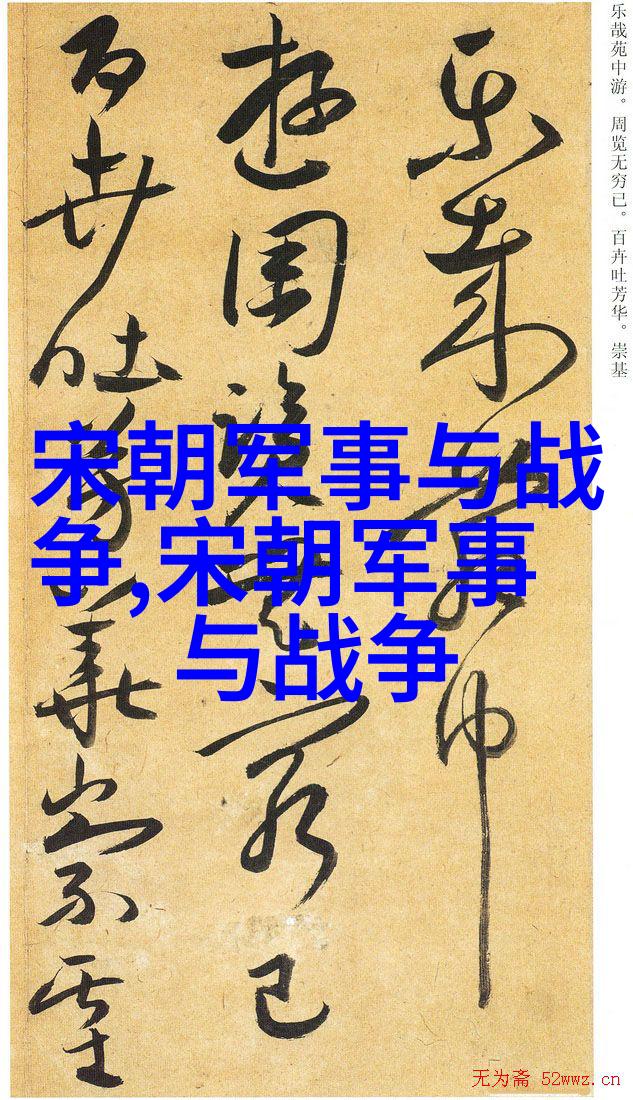 乐哉苑中游。周览无穷已。百卉吐芳华。崇基
樂哉苑中
遊周覽無窮已
百卉吐芳華崇基
宋朝军事与战
争,宋朝军事
与战争
无为斋 52wwz.cn